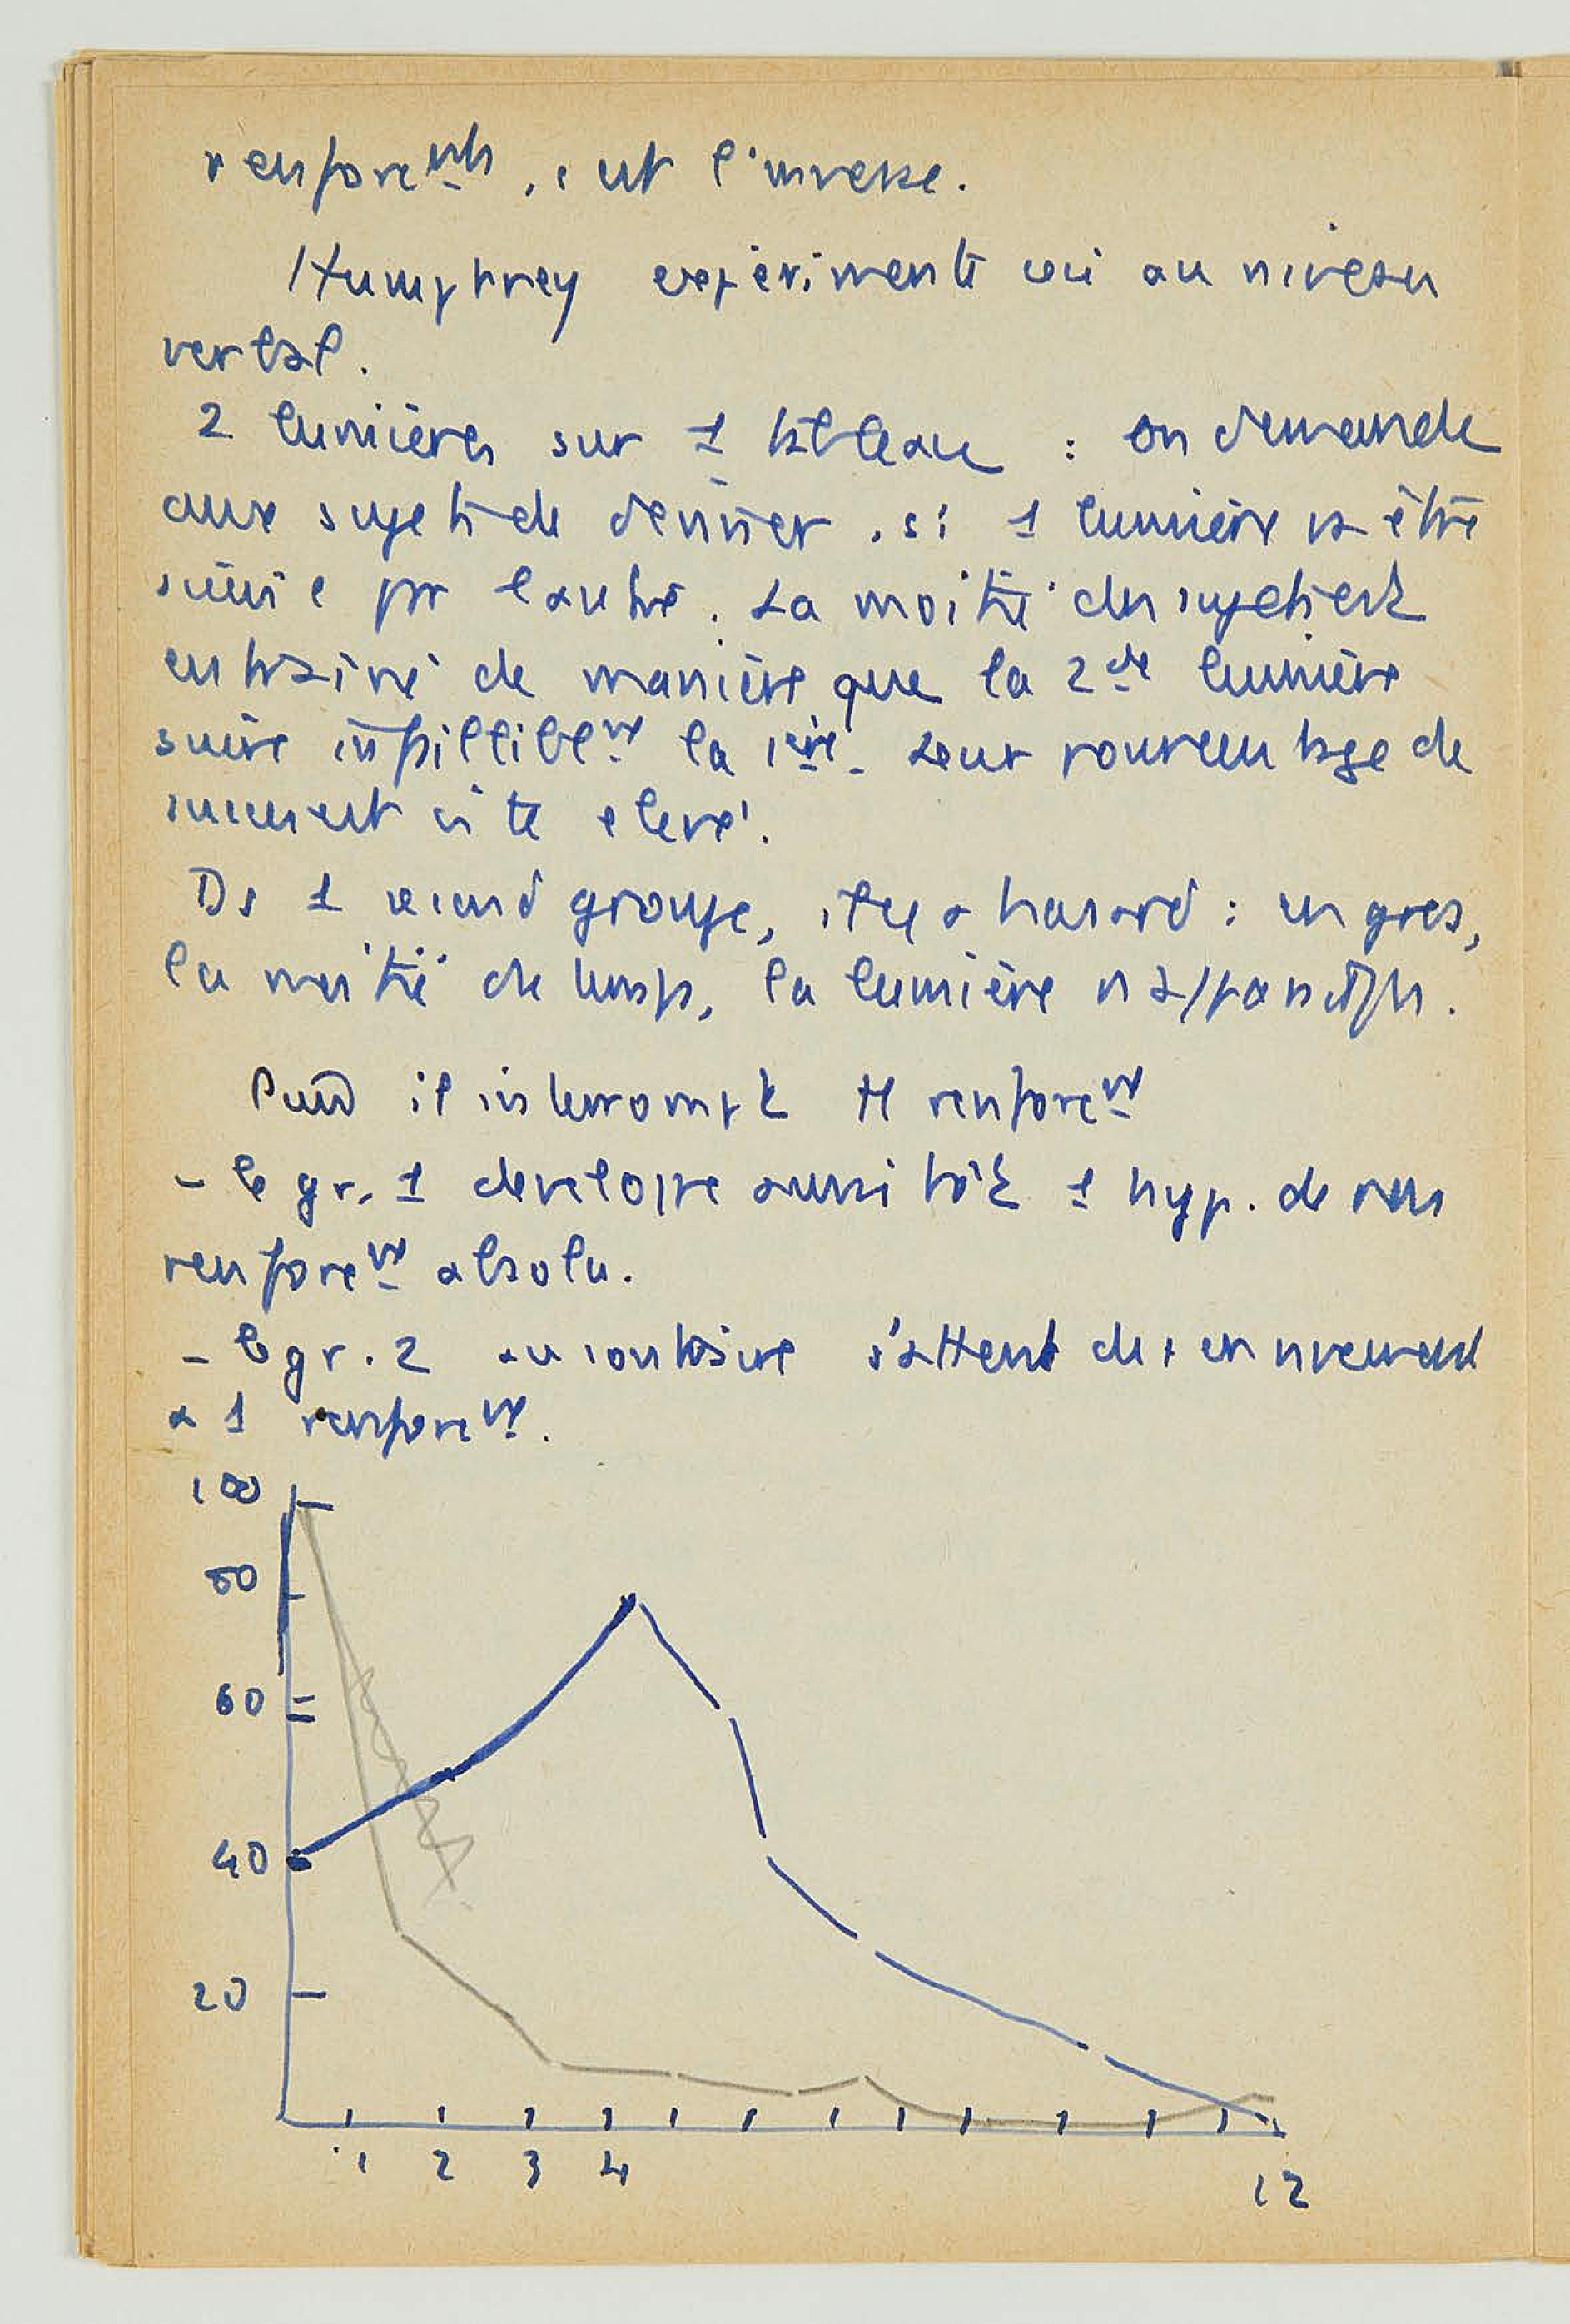 renforc<sup>mts</sup>, c'est l'inverse.
Humphrey expérimente ceci au niveau
verbal.
2 lumières sur 1 tableau : on demande
aux sujets de deviner si 1 lumière va être
suivie par l'autre. La moitié des sujets est
entraîné de manière que la 2<sup>de</sup> lumière
suive infailliblem<sup>t</sup> la 1<sup>ère</sup>. Leur pourcentage de
succès est vite élevé.
Ds 1 second groupe, il y a hasard : en gros,
la moitié du temps, la lumière
Quand il interrompt tt renforc<sup>mt</sup>
- le gr. 1 développe aussitôt 1 hyp. de non
renforc<sup>mt</sup> absolu.
- le gr. 2 au contraire s'attend de + en
à 1 renforc<sup>mt</sup>.
100
80
60
40
20
1 2 3 4 12